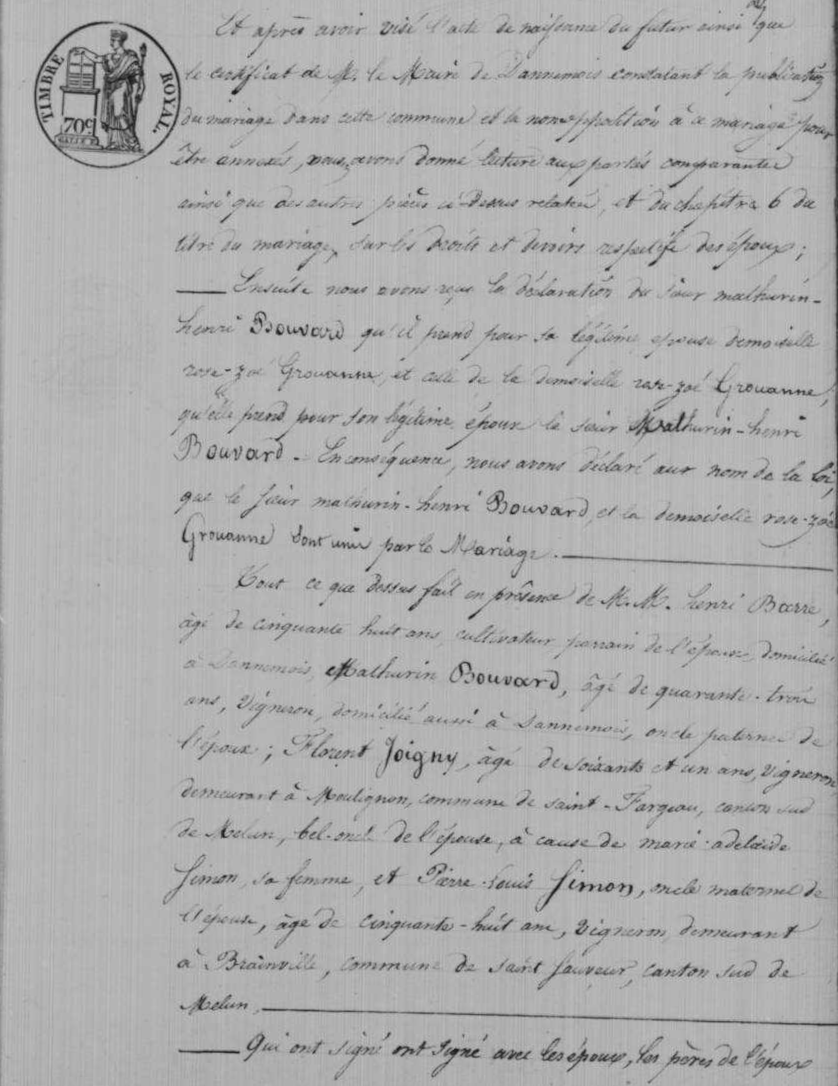 TIMBRE ROYAL.
70c
Et après avoir visé l'acte de naissance du futur ainsi que
le certificat de M. le Maire de Dannemois constatant la publication
du mariage dans cette commune et la non opposition à ce mariage pour
être annexés, nous avons donné lecture aux parties comparantes
ainsi que des autres pièces ci Dessus relatées, et du chapitre 6 du
titre du mariage, sur les droits et devoirs respectifs des époux;
Ensuite nous avons reçu la déclaration du Sieur mathurin-
henri Bouvard qu'il prend pour sa légitime epouse demoiselle
rose-zoé Grouanne, et celle de la demoiselle rose-zoé Grouanne,
qu'elle prend pour son légitime époux le sieur Mathurin-henri
Bouvard. En conséquence, nous avons déclaré aux nom de la loi,
que le sieur mathurin-henri Bouvard, et la demoiselle rose-zoé
Grouanne sont unis par le Mariage.
Tout ce que dessus fait en présence de M.M. henri
âgé de cinquante huit ans, cultivateur parrain de l'époux, domicilié
à Dannemois, Mathurin Bouvard, âgé de quarante-trois
ans, Vigneron, domicilié aussi à Dannemois, oncle paternel de
l'époux; Florent Joigny, âgé de soixante et un ans, Vigneron,
demeurant à Moulignon, commune de saint-Fargeau, canton sud
de Melun, bel-oncle de l'épouse, à cause de marie-adelaide
Simon, sa femme, et Pierre-Louis Simon, oncle maternel de
l'épouse, âgé de cinquante-huit ans, Vigneron, demeurant
à Brainville, commune de saint Sauveur, canton sud de
Melun,
Qui ont signé ont signé avec les époux, les pères de l'époux